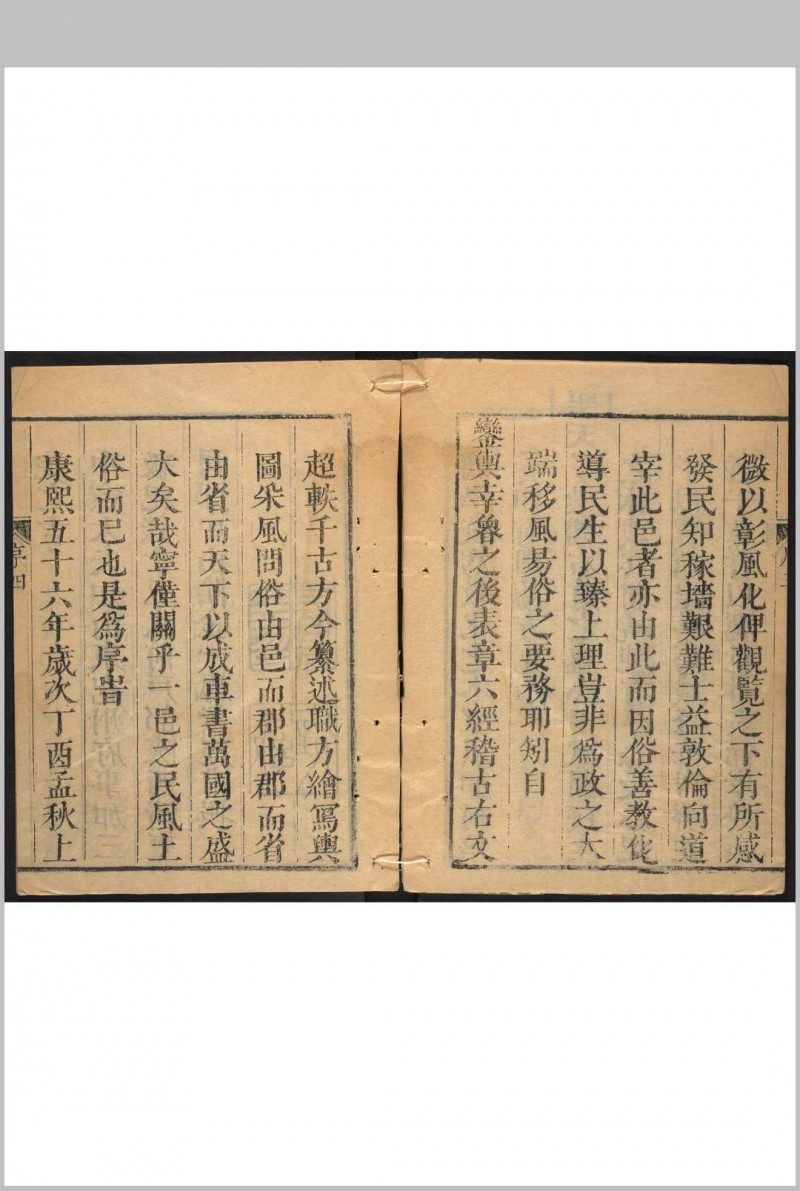 徵以彰風化俾觀覽之下有所感
發民知稼墻艱難士益敦倫向道
宰此邑者亦由此而因俗善教化
導民生以臻上理豈非為政之大
端移風易俗之要務耶矧自
鑾輿幸魯之後表章六經稽古右文
超軼千古方今纂述職方繪寫輿
圖采風問俗由邑而郡由郡而省
由省而天下以成車書萬國之盛
大矣哉寧僅關乎一邑之民風土
俗而已也是為序旹
康熙五十六年歲次丁酉孟秋上
序四